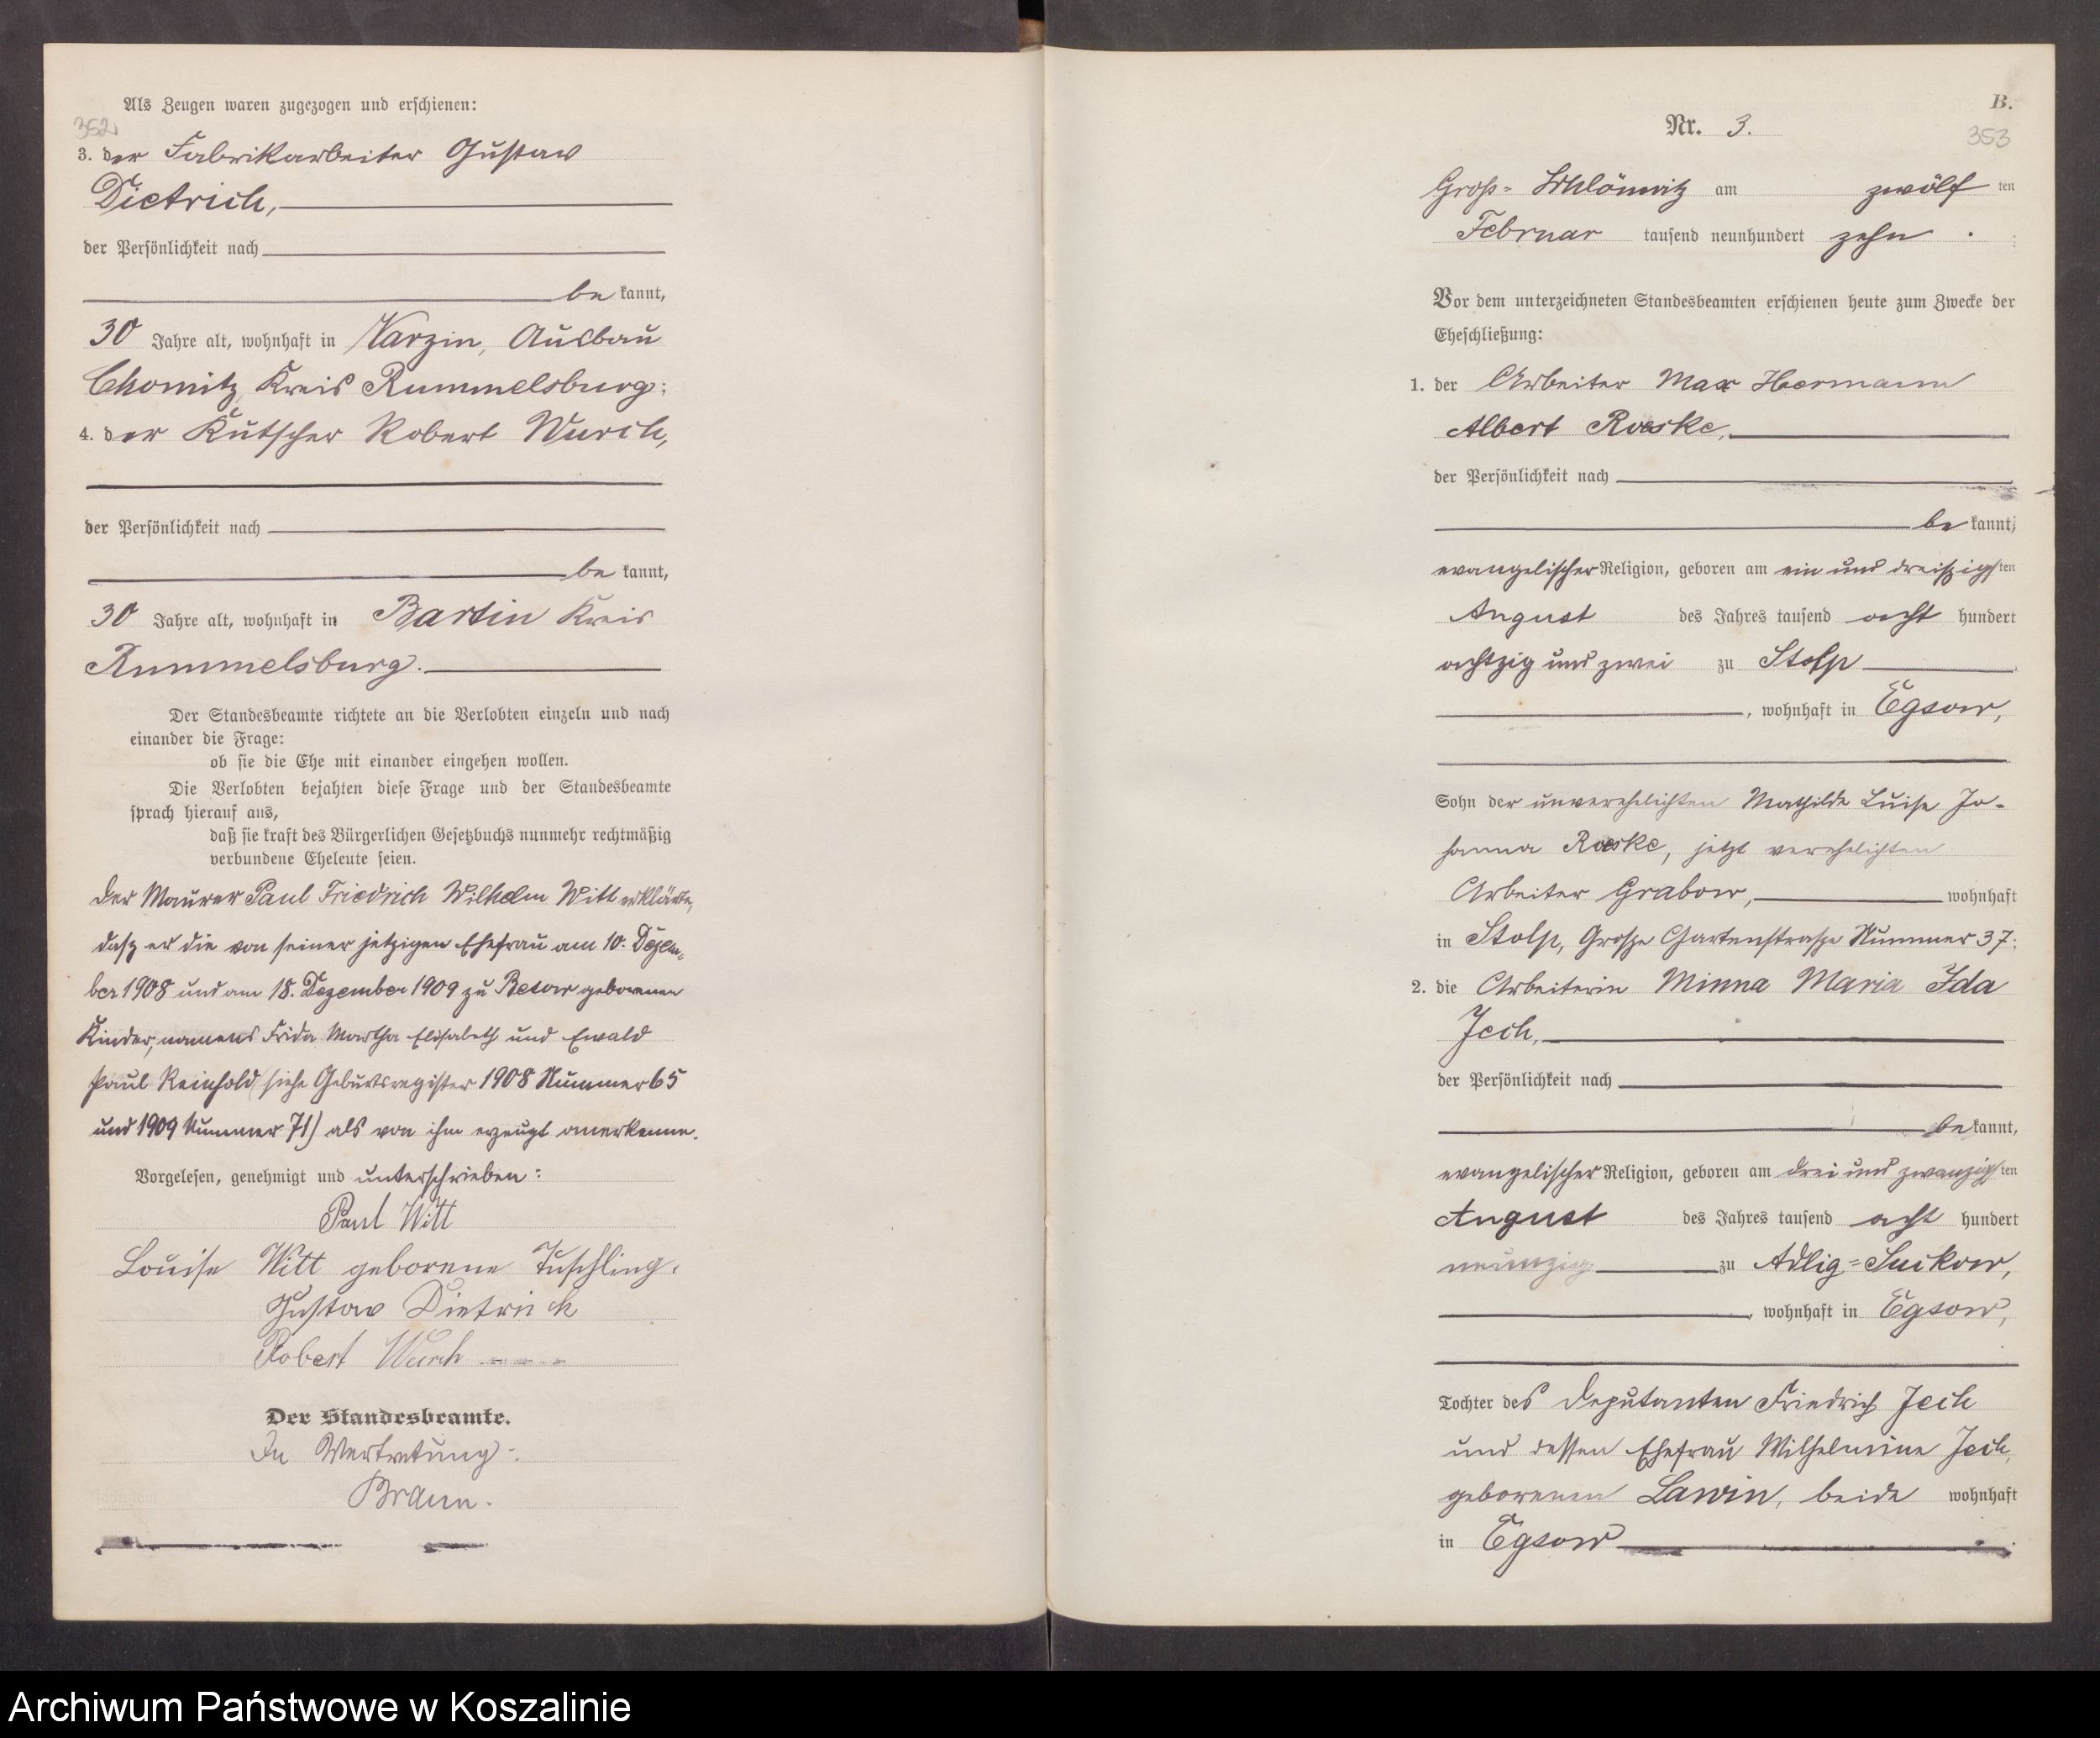 Als Zeugen waren zugezogen und erschienen:
352
3. der Fabrikarbeiter Gustav
Dietrich,
der Persönlichkeit nach
be kannt,
30 Jahre alt, wohnhaft in Varzin, Ausbau
Chomitz, Kreis Rummelsburg;
4. der Kutscher Robert Wurch,
der Persönlichkeit nach
be kannt,
30 Jahre alt, wohnhaft in Bartin Kreis
Rummelsburg.
Der Standesbeamte richtete an die Verlobten einzeln und nach
einander die Frage:
ob sie die Ehe mit einander eingehen wollen.
Die Verlobten bejahten diese Frage und der Standesbeamte
sprach hierauf aus,
daß sie kraft des Bürgerlichen Gesetzbuchs nunmehr rechtmäßig
verbundene Eheleute seien.
Der Maurer Paul Friedrich Wilhelm Witt erklärte,
dasz er die von seiner jetzigen Ehefrau am 10. Dezem-
ber 1908 und am 18. Dezember 1909 zu Besow geborenen
Kinder, namens Frida Martha Elisabeth und Ewald
Paul Reinhold (siehe Geburtsregister 1908 Nummer 65
und 1909 Nummer 71) als von ihm erzeugt anerkenne.
Vorgelesen, genehmigt und unterschrieben:
Paul Witt
Louise Witt geborene Tuschling.
Gustav Dietrich
Robert Wurch
Der Standesbeamte.
In Vertretung:
Braun.
B.
Nr. 3.
353
Groß-Schlönwitz am zwölf ten
Februar tausend neunhundert zehn.
Vor dem unterzeichneten Standesbeamten erschienen heute zum Zwecke der
Eheschließung:
1. der Arbeiter Max Hermann
Albert Roeske,
der Persönlichkeit nach
be kannt,
evangelischer Religion, geboren am ein und dreiszigsten
August des Jahres tausend acht hundert
achtzig und zwei zu Stolp
, wohnhaft in Egsow,
Sohn der unverehelichten Mathilde Luise Jo-
hanna Roeske, jetzt verehelichten
Arbeiter Grabow, wohnhaft
in Stolp, Grosze Gartenstrasze Nummer 37;
2. die Arbeiterin Minna Maria Ida
Jech,
der Persönlichkeit nach
be kannt,
evangelischer Religion, geboren am drei und zwanzigsten
August des Jahres tausend acht hundert
neunzig zu Adlig-Suckow,
, wohnhaft in Egsow,
Tochter des Deputanten Friedrich Jech
und dessen Ehefrau Wilhelmine Jech,
geborenen Lawin, beide wohnhaft
in Egsow
Archiwum Państwowe w Koszalinie